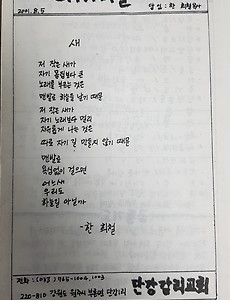 2001. 8. 5
담임 : 한 희철 목사
새
저 작은 새가
자기 몸집보다 큰
노래를 부르는 것은
맨발로 하늘을 날기 때문
저 작은 새가
자기 노래보다 멀리
자유롭게 나는 것은
따로 자기 길 만들지 않기 때문
맨발로
욕심없이 걸으면
어느새
우리도
하늘길 아닐까
-한 희철
전화 : (033) 765-1004, 1003
단강감리교회
220-810 강원도 원주시 부론면 단강1리